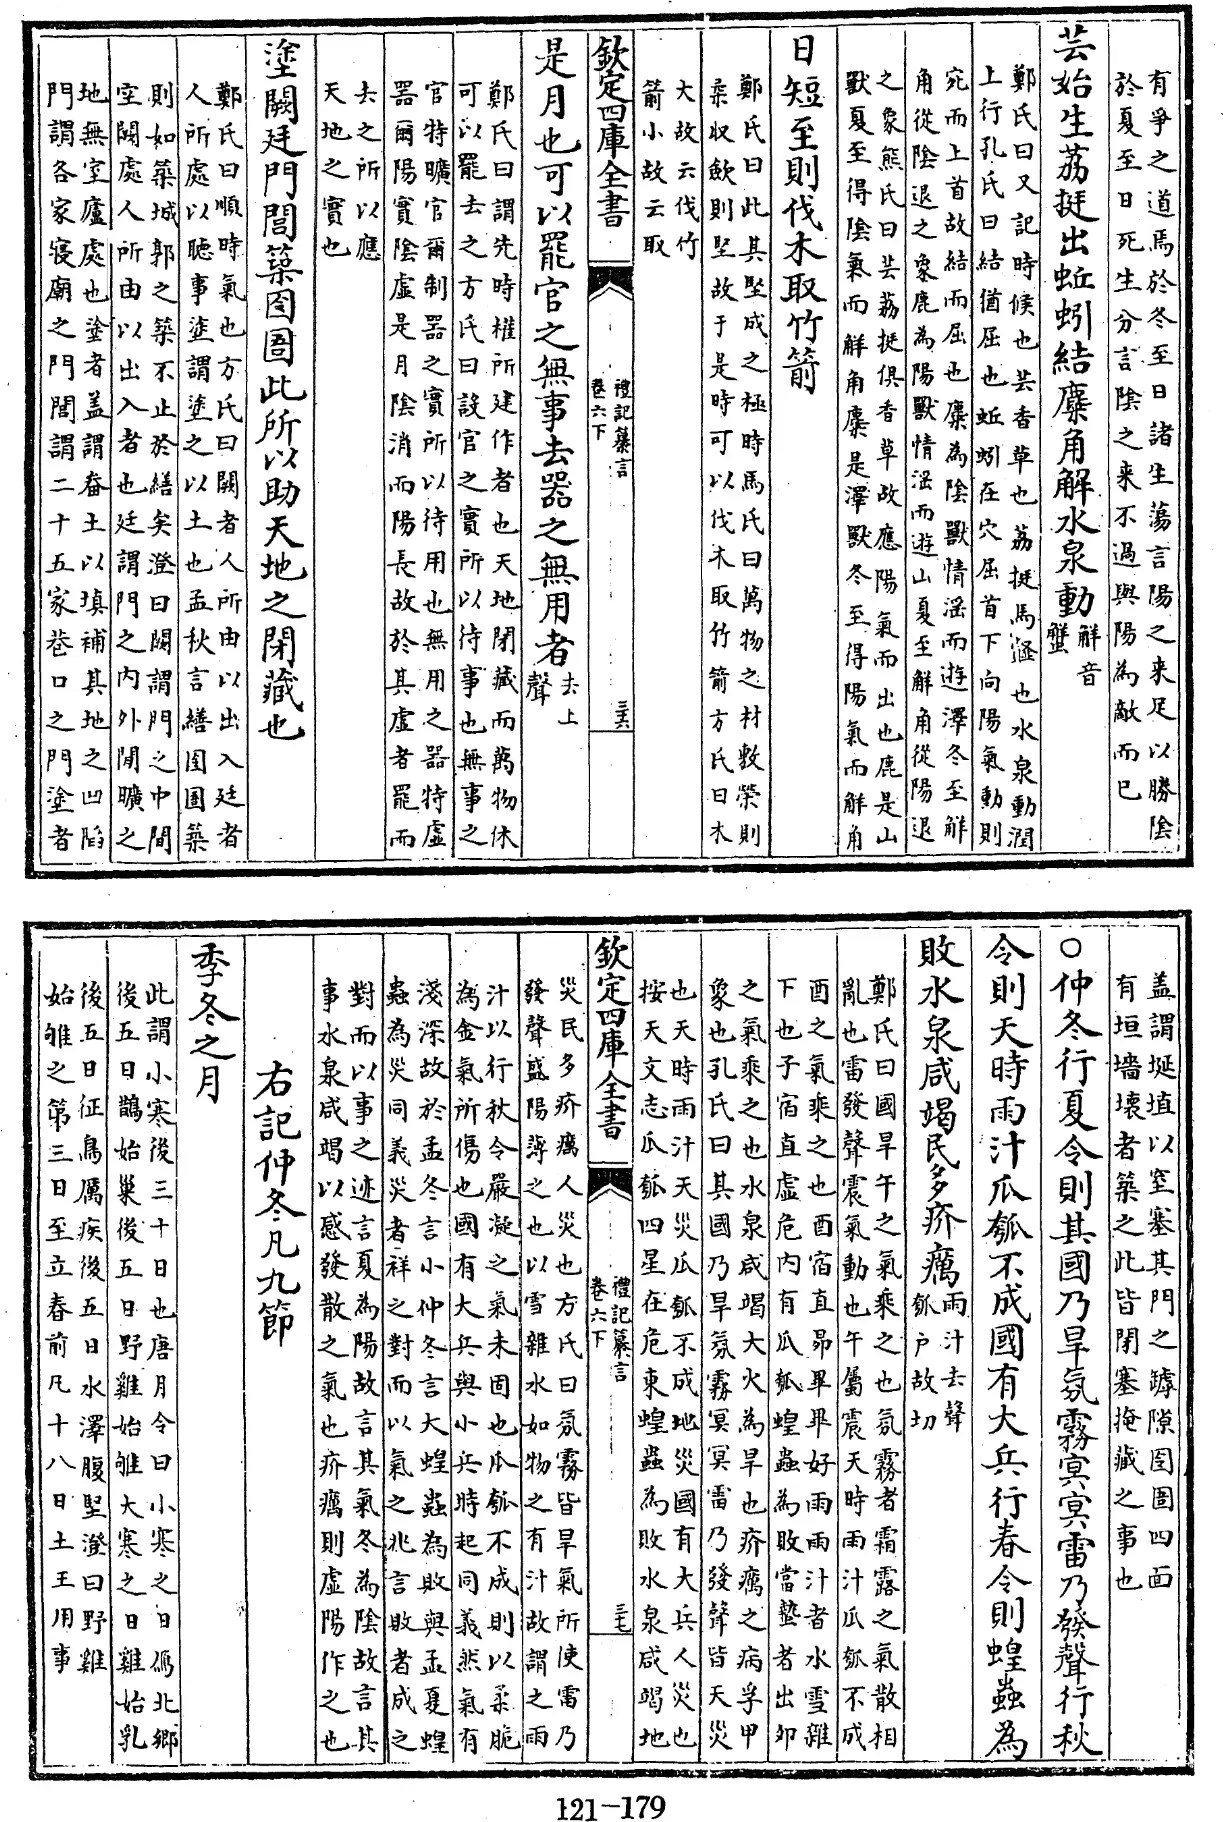 有爭之道焉於冬至日諸生蕩言陽之来足以勝陰
於夏至日死生分言陰之来不過與陽為敵而已
芸始生荔挺出蚯蚓結麋角解水泉動解音
蟹
鄭氏曰又記時候也芸香草也荔挺馬𧃲也水泉動潤
上行孔氏曰結猶屈也蚯蚓在穴屈首下向陽氣動則
宛而上首故結而屈也麋為陰獸情淫而遊澤冬至解
角從陰退之象鹿為陽獸情淫而遊山夏至解角從陽退
之象熊氏曰芸荔挺俱香草故應陽氣而出也鹿是山
獸夏至得陰氣而解角麋是澤獸冬至得陽氣而解角
日短至則伐木取竹箭
鄭氏曰此其堅成之極時馬氏曰萬物之材敷榮則
柔収斂則堅故于是時可以伐木取竹箭方氏曰木
大故云伐竹
箭小故云取
欽定四庫全書
禮記纂言
卷六下
三六
是月也可以罷官之無事去器之無用者去上
聲
鄭氏曰謂先時權所建作者也天地閉藏而萬物休
可以罷去之方氏曰設官之實所以待事也無事之
官特曠官爾制器之實所以待用也無用之器特虛
器爾陽實陰虛是月陰消而陽長故於其虛者罷而
去之所以應
天地之實也
塗闕廷門閭築囹圄此所以助天地之閉藏也
鄭氏曰順時氣也方氏曰闕者人所由以出入廷者
人所處以聽事塗謂塗之以土也孟秋言繕囹圄築
則如築城郭之築不止於繕矣澄曰闕謂門之中間
空闕處人所由以出入者也廷謂門之内外閒曠之
地無室廬處也塗者盖謂畚土以填補其地之凹陷
門謂各家寢廟之門閭謂二十五家巷口之門塗者
盖謂埏埴以窒塞其門之罅隙囹圄四面
有垣墻壊者築之此皆閉塞掩藏之事也
○仲冬行夏令則其國乃旱氛霧㝠㝠雷乃發聲行秋
令則天時雨汁瓜瓠不成國有大兵行春令則蝗蟲為
敗水泉咸竭民多疥癘雨汁去聲
瓠户故切
鄭氏曰國旱午之氣乘之也氛霧者霜露之氣散相
亂也雷發聲震氣動也午屬震天時雨汁瓜瓠不成
酉之氣乘之也酉宿直昴畢畢好雨雨汁者水雪雜
下也子宿直虛危内有瓜瓠蝗蟲為敗當蟄者出卯
之氣乘之也水泉咸竭大火為旱也疥癘之病孚甲
象也孔氏曰其國乃旱氛霧冥冥雷乃發聲皆天災
也天時雨汁天災瓜瓠不成地災國有大兵人災也
按天文志瓜瓠四星在危東蝗蟲為敗水泉咸竭地
欽定四庫全書
禮記纂言
卷六下
三七
災民多疥癘人災也方氏曰氛霧皆旱氣所使雷乃
發聲盛陽薄之也以雪雜水如物之有汁故謂之雨
汁以行秋令嚴凝之氣未固也瓜瓠不成則以柔脆
為金氣所傷也國有大兵與小兵時起同義然氣有
淺深故於孟冬言小仲冬言大蝗蟲為敗與孟夏蝗
蟲為災同義災者祥之對而以氣之兆言敗者成之
對而以事之迹言夏為陽故言其氣冬為陰故言其
事水泉咸竭以感發散之氣也疥癘則虛陽作之也
右記仲冬凡九節
季冬之月
此謂小寒後三十日也唐月令曰小寒之日鴈北鄉
後五日鵲始巢後五日野雞始雊大寒之日雞始乳
後五日征鳥厲疾後五日水澤腹堅澄曰野雞
始雊之第三日至立春前凡十八日土王用事
121-179